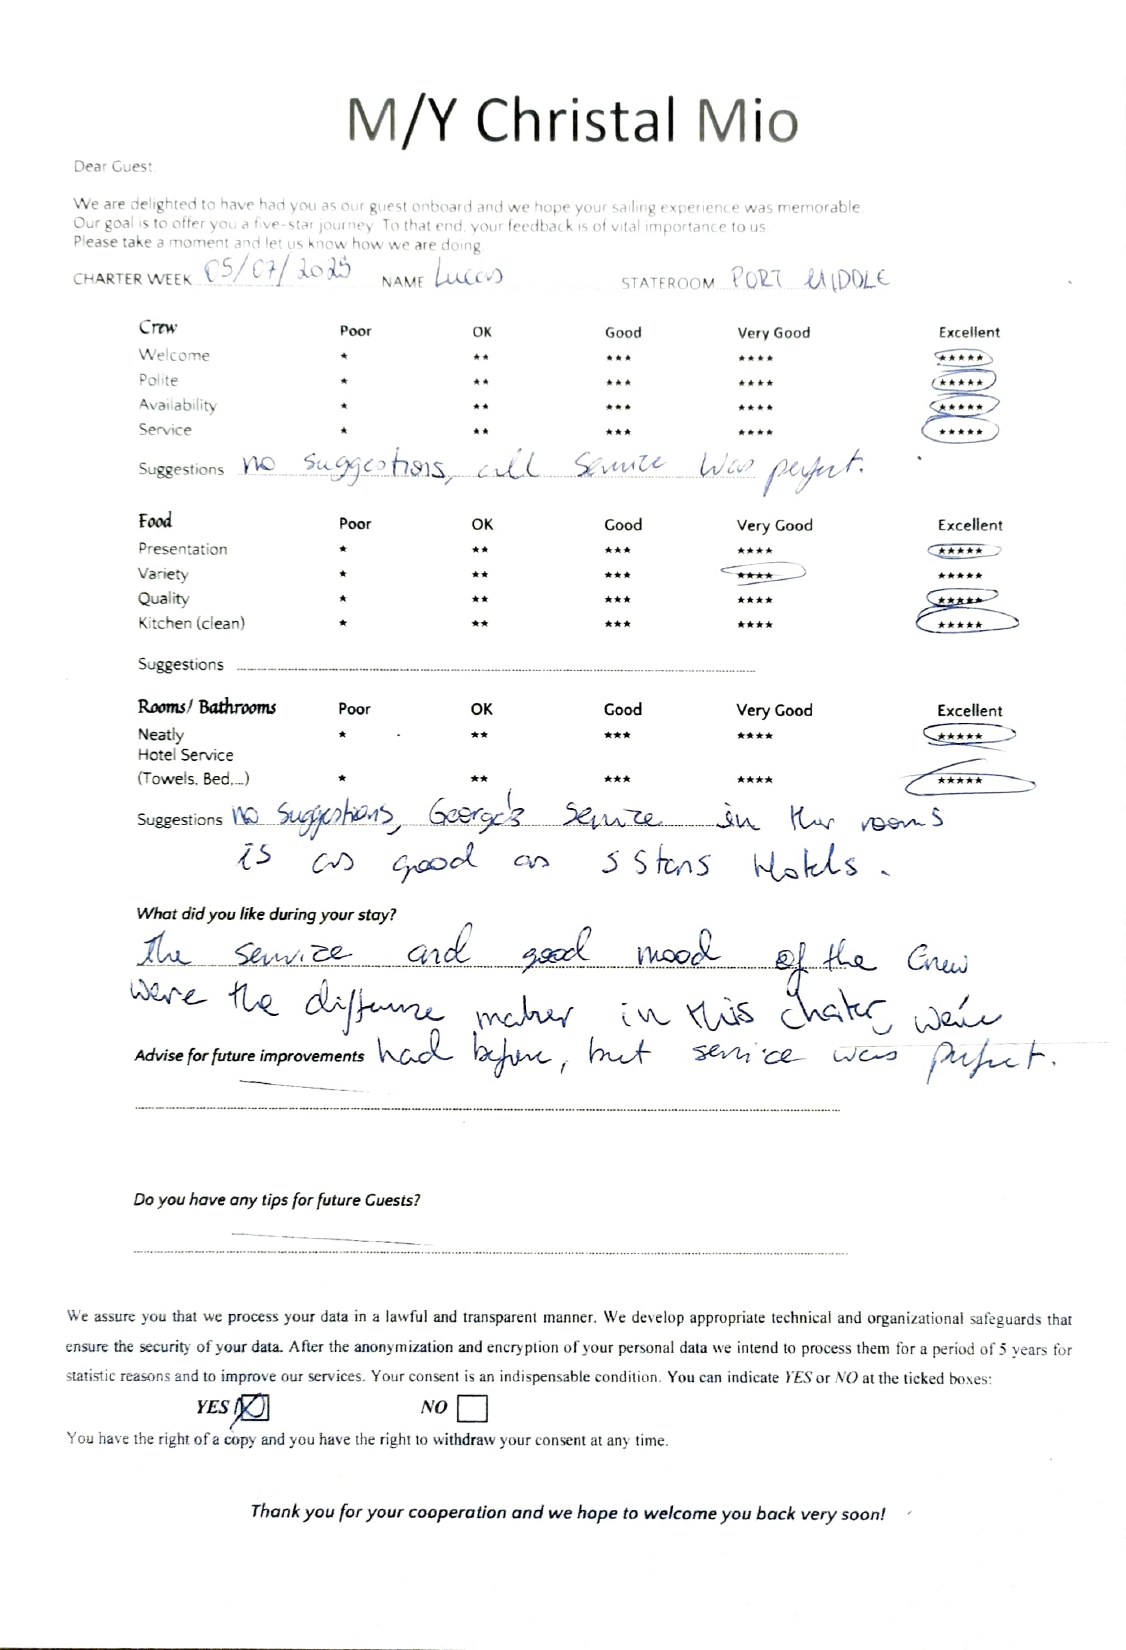 M/Y Christal Mio
Dear Guest.
We are delighted to have had you as our guest onboard and we hope your sailing experience was memorable.
Our goal is to offer you a five-star journey. To that end, your feedback is of vital importance to us.
Please take a moment and let us know how we are doing.
CHARTER WEEK 05/07/2025 NAME Lucas STATEROOM PORT MIDDLE
Crew Poor OK Good Very Good Excellent
Welcome * ** *** **** *****
Polite * ** *** **** *****
Availability * ** *** **** *****
Service * ** *** **** *****
Suggestions no suggestions, all service was perfect.
Food Poor OK Good Very Good Excellent
Presentation * ** *** **** *****
Variety * ** *** **** *****
Quality * ** *** **** *****
Kitchen (clean) * ** *** **** *****
Suggestions
Rooms/ Bathrooms Poor OK Good Very Good Excellent
Neatly * ** *** **** *****
Hotel Service
(Towels, Bed,...) * ** *** **** *****
Suggestions no suggestions, George's service in the rooms
is as good as 5 Stars Hotels.
What did you like during your stay?
The service and good mood of the Crew
were the difference maker in this charter, we've
Advise for future improvements had before, but service was perfect.
Do you have any tips for future Guests?
We assure you that we process your data in a lawful and transparent manner. We develop appropriate technical and organizational safeguards that
ensure the security of your data. After the anonymization and encryption of your personal data we intend to process them for a period of 5 years for
statistic reasons and to improve our services. Your consent is an indispensable condition. You can indicate YES or NO at the ticked boxes:
YES NO
You have the right of a copy and you have the right to withdraw your consent at any time.
Thank you for your cooperation and we hope to welcome you back very soon!